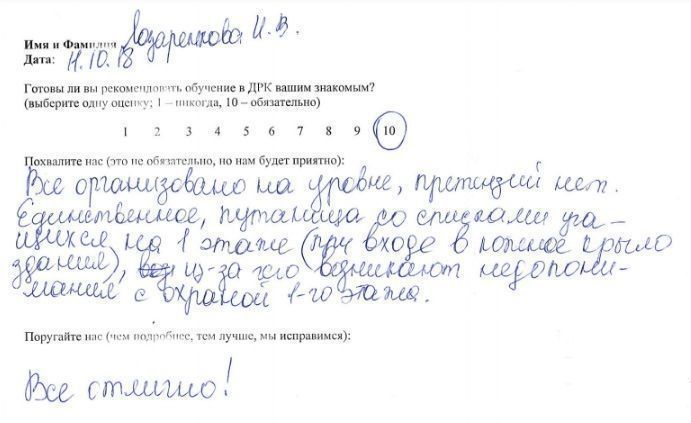 Имя и Фамилия Лазаренкова И.В.
Дата: 11.10.18
Готовы ли вы рекомендовать обучение в ДРК вашим знакомым?
(выберите одну оценку; 1 – никогда, 10 – обязательно)
1 2 3 4 5 6 7 8 9 10
Похвалите нас (это не обязательно, но нам будет приятно):
Все организовано на уровне, претензий нет.
Единственное, путаница со списками уча-
щихся на 1 этаже (при входе в южное крыло
здания), из-за чего возникают недопони-
мания с охраной 1-го этажа.
Поругайте нас (чем подробнее, тем лучше, мы исправимся):
Все отлично!